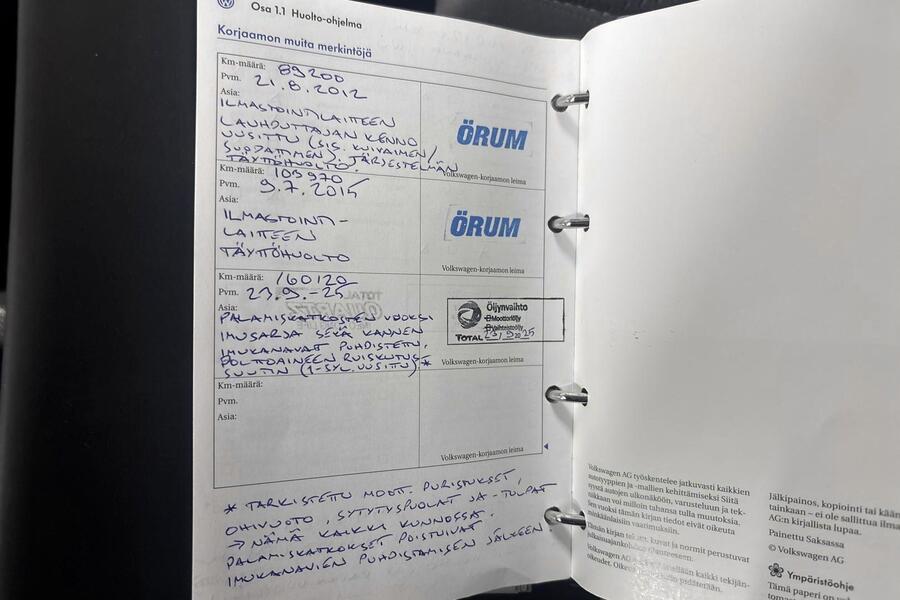 Osa 1.1 Huolto-ohjelma
Korjaamon muita merkintöjä
Km-määrä: 89200
Pvm. 21.8.2012
Asia:
ILMASTOINTILAITTEEN
LAUHDUTTAJAN KENNO
UUSITTU (SIS. KUIVAIMEN/
SUODATTIMEN). JÄRJESTELMÄN
TÄYTTÖHUOLTO.
ÖRUM
Volkswagen-korjaamon leima
Km-määrä: 109970
Pvm. 9.7.2015
Asia:
ILMASTOINTI-
LAITTEEN
TÄYTTÖHUOLTO
ÖRUM
Volkswagen-korjaamon leima
Km-määrä: 160120
Pvm. 23.9.-25
Asia:
PALAMISKATKOSTEN VUOKSI
IMUSARJA SEKÄ KANNEN
IMUKANAVAT PUHDISTETTU.
POLTTOAINEEN RUISKUTUS
SUUTIN (1-SYL. UUSITTU) *
Öljynvaihto
Moottoriöljy
Vaihteistoöljy
TOTAL 23/9 2025
Volkswagen-korjaamon leima
Km-määrä:
Pvm.
Asia:
Volkswagen-korjaamon leima
* TARKISTETTU MOOT. PURISTUKSET,
OHIVUOTO, SYTYTYSPUOLAT JA -TULPAT
→ NÄMÄ KAIKKI KUNNOSSA.
PALAMISKATKOKSET POISTUIVAT
IMUKANAVIEN PUHDISTAMISEN JÄLKEEN
Volkswagen AG työskentelee jatkuvasti kaikkien
autotyyppien ja -mallien kehittämiseksi Siitä
syystä autojen ulkonäköön, varusteluun ja tek-
niikkaan voi milloin tahansa tulla muutoksia.
Sen vuoksi tämän kirjan tiedot eivät oikeuta
minkäänlaisiin vaatimuksiin.
Tämän kirjan tekstit, kuvat ja normit perustuvat
Volkswagen AG kaikki tekijän-
oikeudet.
Jälkipainos, kopiointi tai kään
tainkaan – ei ole sallittua ilma
AG:n kirjallista lupaa.
Painettu Saksassa
© Volkswagen AG
Ympäristöohje
Tämä paperi on